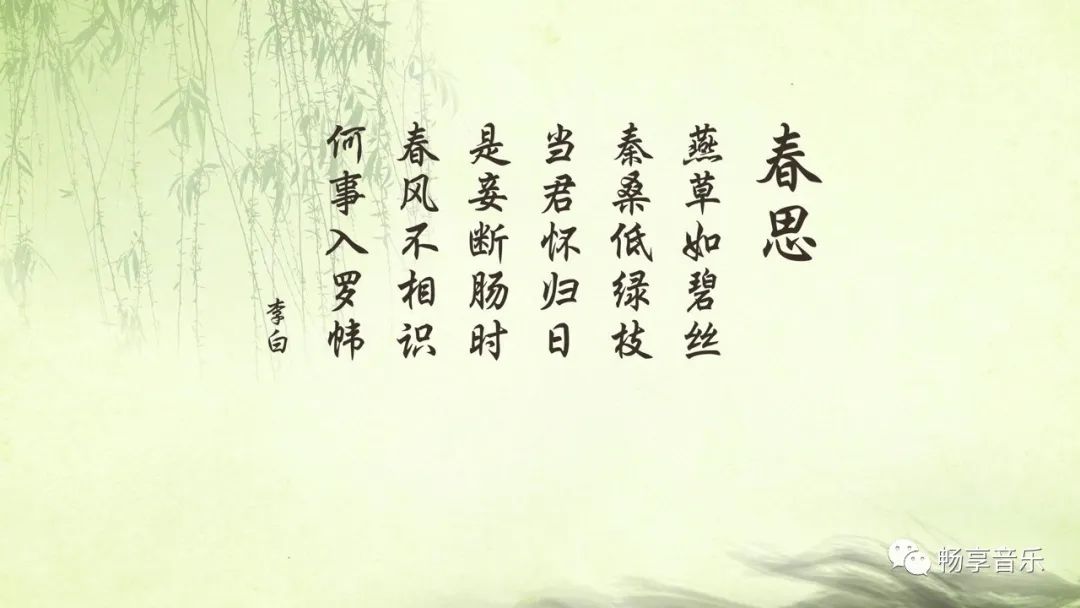 春思
燕草如碧丝
秦桑低绿枝
当君怀归日
是妾断肠时
春风不相识
何事入罗帏
李白
畅享音乐